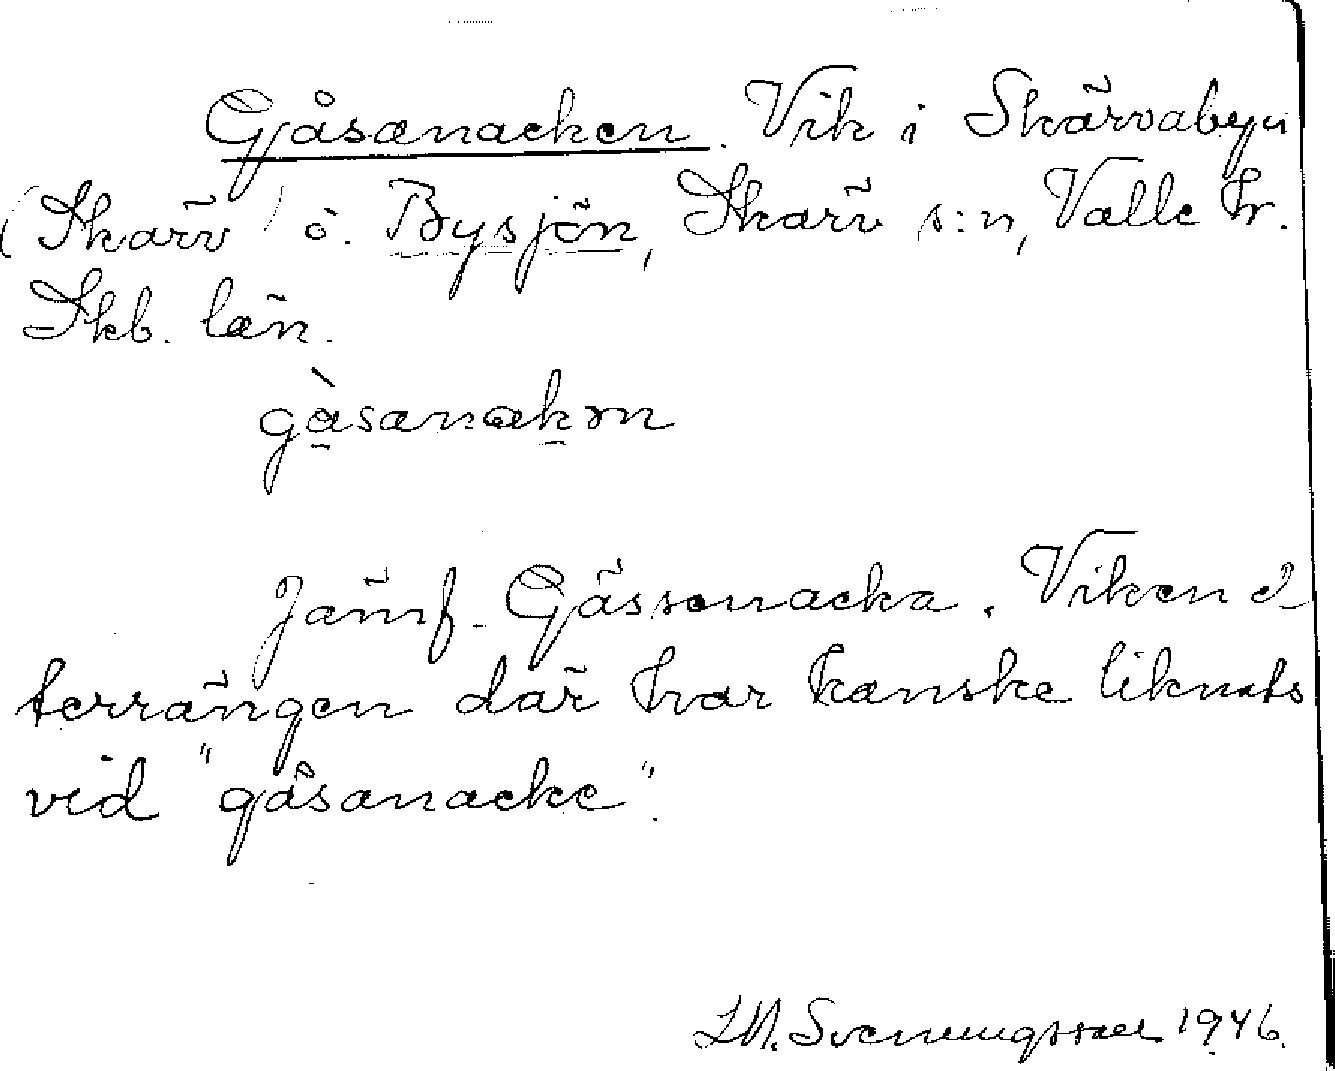 Gåsanacken. Vik i Skärvabyn
(Skärv) ö. Bysjön, Skärv s:n, Valle hr.
Skb. län.
gàsanakɔn
Jämf. Gässenacka. Viken o.
terrängen där har kanske liknats
vid "gåsanacke".
Svenningsson 1946.